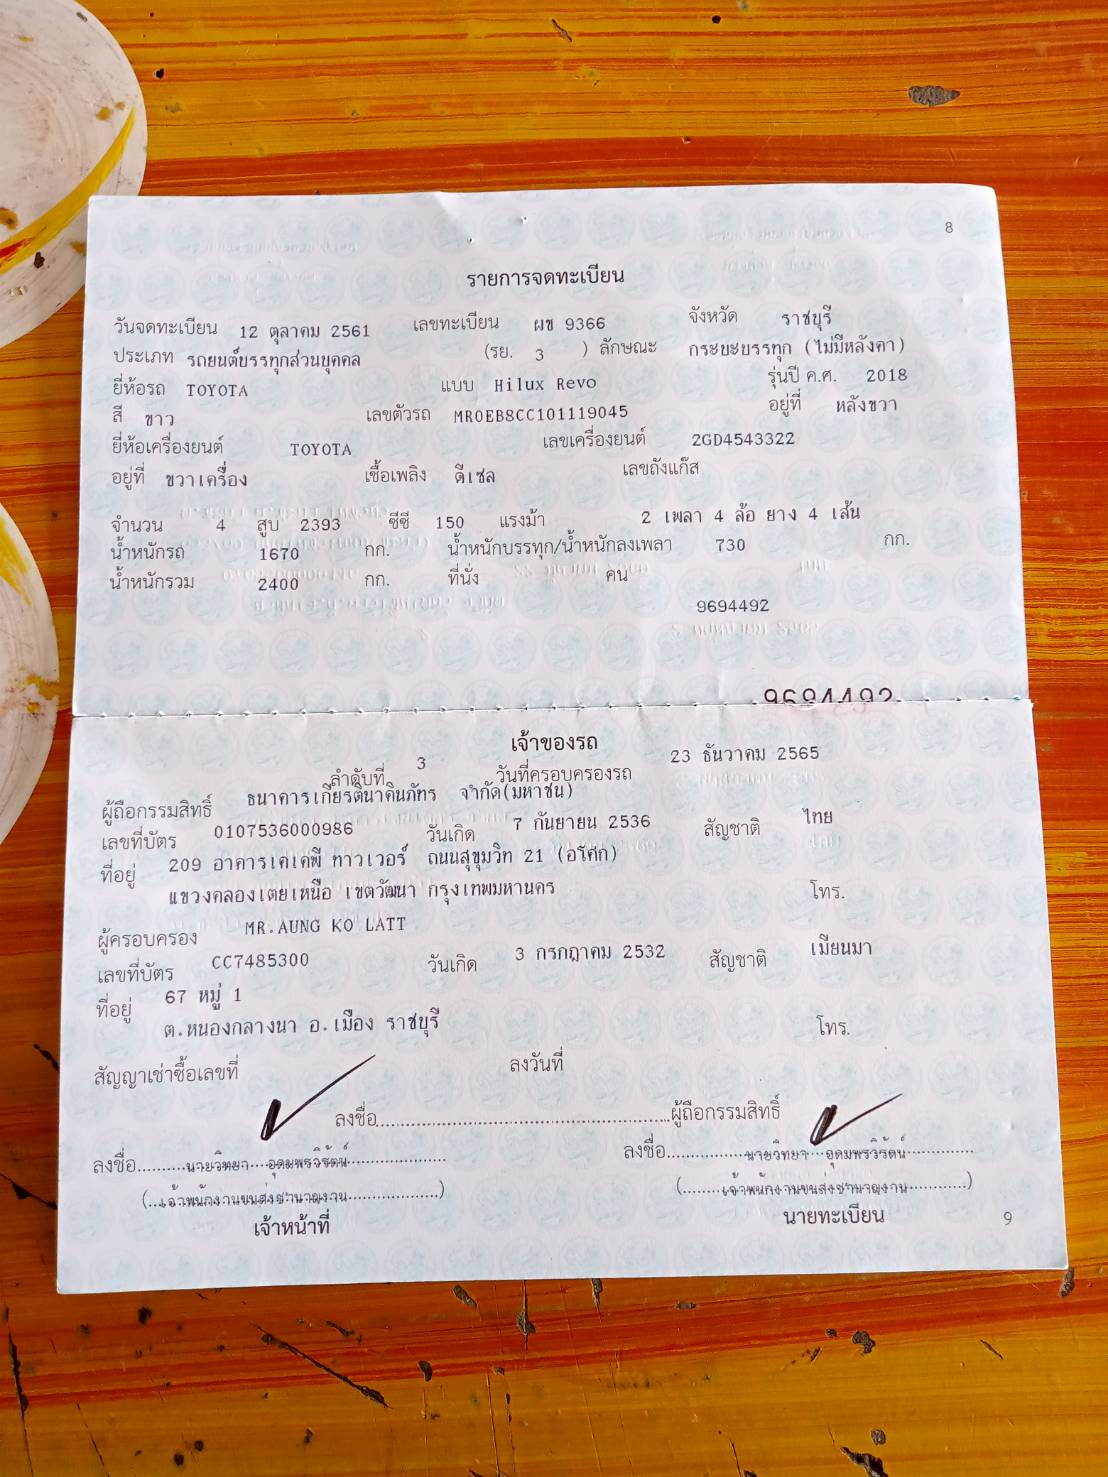 8
รายการจดทะเบียน
วันจดทะเบียน 12 ตุลาคม 2561 เลขทะเบียน ผข 9366 จังหวัด ราชบุรี
ประเภท รถยนต์บรรทุกส่วนบุคคล (รย. 3 ) ลักษณะ กระบะบรรทุก (ไม่มีหลังคา)
ยี่ห้อรถ TOYOTA แบบ Hilux Revo รุ่นปี ค.ศ. 2018
สี ขาว เลขตัวรถ MR0EB8CC101119045 อยู่ที่ หลังขวา
ยี่ห้อเครื่องยนต์ TOYOTA เลขเครื่องยนต์ 2GD4543322
อยู่ที่ ขวาเครื่อง เชื้อเพลิง ดีเซล เลขถังแก๊ส
จำนวน 4 สูบ 2393 ซีซี 150 แรงม้า 2 เพลา 4 ล้อ ยาง 4 เส้น
น้ำหนักรถ 1670 กก. น้ำหนักบรรทุก/น้ำหนักลงเพลา 730 กก.
น้ำหนักรวม 2400 กก. ที่นั่ง คน
9694492
9694492
เจ้าของรถ
ลำดับที่ 3 วันที่ครอบครองรถ 23 ธันวาคม 2565
ผู้ถือกรรมสิทธิ์ ธนาคารเกียรตินาคินภัทร จำกัด(มหาชน)
เลขที่บัตร 0107536000986 วันเกิด 7 กันยายน 2536 สัญชาติ ไทย
ที่อยู่ 209 อาคารเคเคพี ทาวเวอร์ ถนนสุขุมวิท 21 (อโศก)
แขวงคลองเตยเหนือ เขตวัฒนา กรุงเทพมหานคร โทร.
ผู้ครอบครอง MR.AUNG KO LATT
เลขที่บัตร CC7485300 วันเกิด 3 กรกฎาคม 2532 สัญชาติ เมียนมา
ที่อยู่ 67 หมู่ 1
ต.หนองกลางนา อ.เมือง ราชบุรี โทร.
สัญญาเช่าซื้อเลขที่ ลงวันที่
ลงชื่อ......................................................ผู้ถือกรรมสิทธิ์
ลงชื่อ..........นายวิทยา...อุดมพรวิรัตน์.................... ลงชื่อ.................นายวิทยา...อุดมพรวิรัตน์..............
(...เจ้าพนักงานขนส่งชำนาญงาน...................) (........เจ้าพนักงานขนส่งชำนาญงาน............)
เจ้าหน้าที่ นายทะเบียน
9